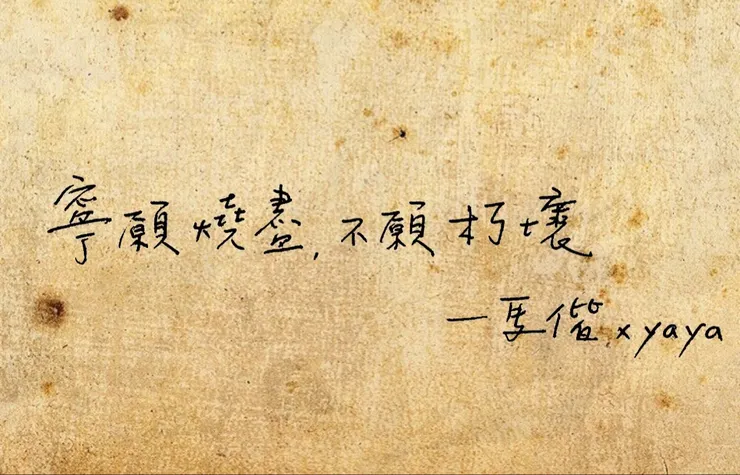 寧願燒盡,不願朽壞
—馬偕 x yaya